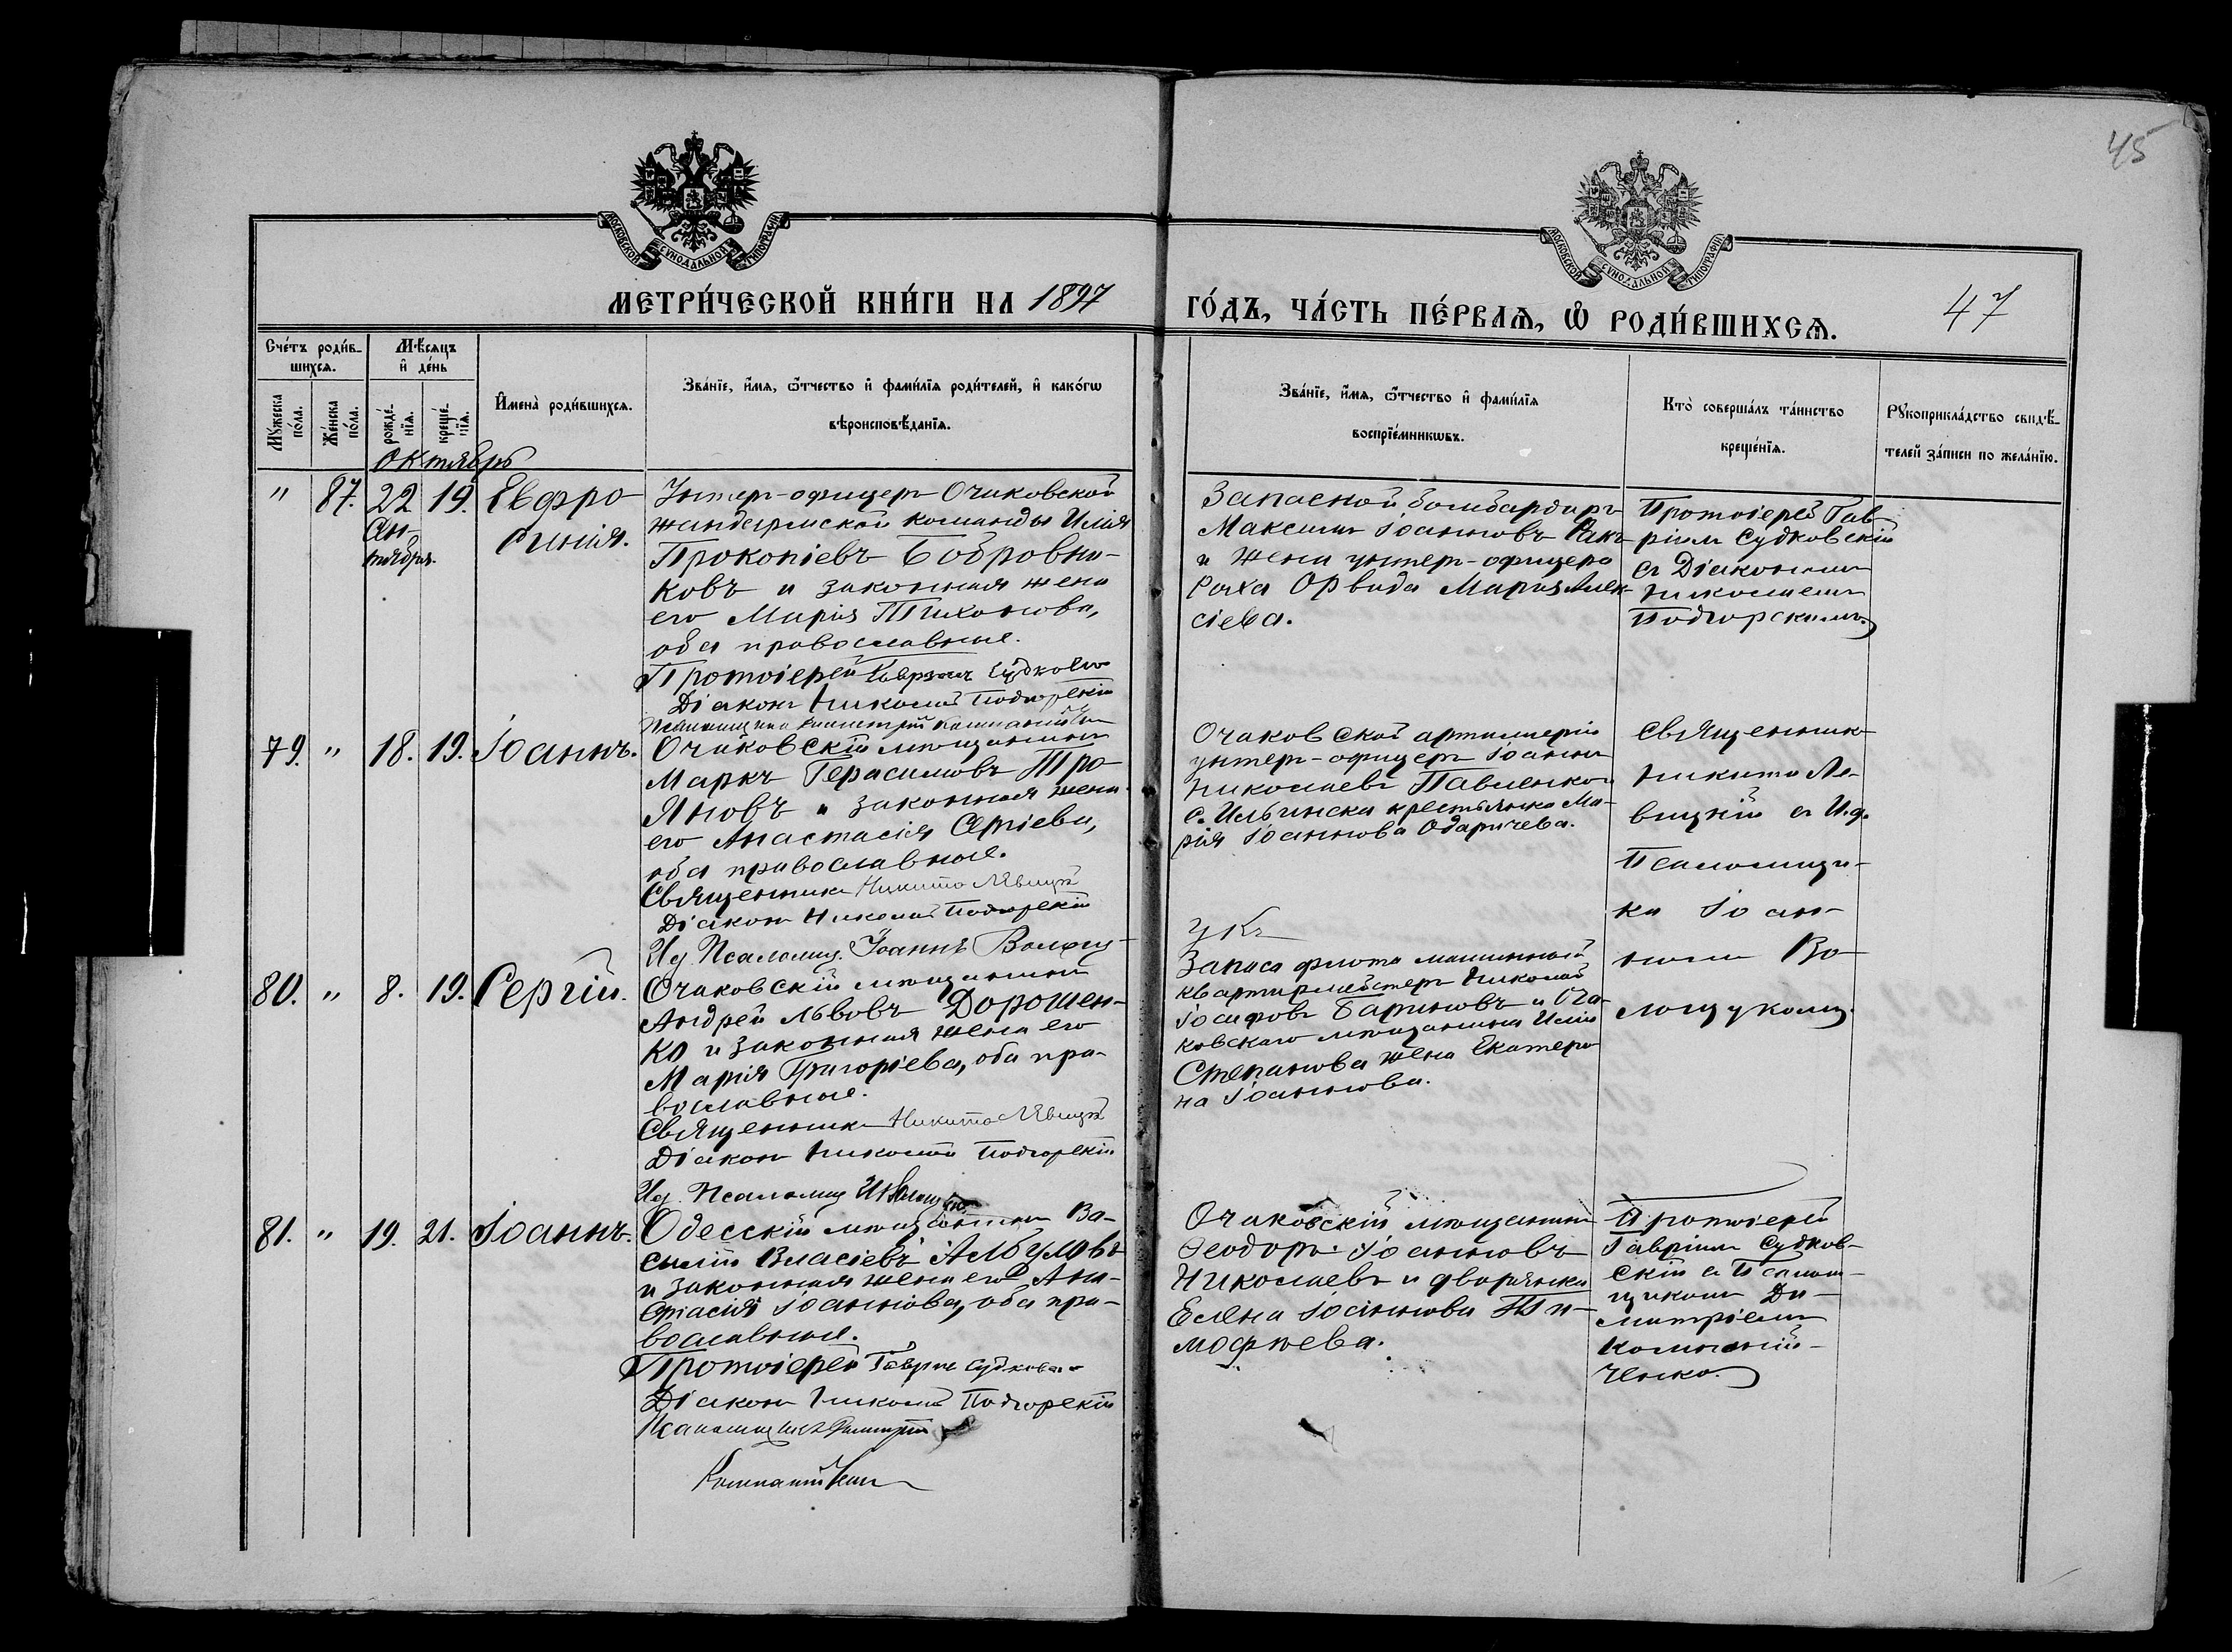 45
МОСКОВСКОЙ СУНОДАЛЬНОЙ ТИПОГРАФІИ
МОСКОВСКОЙ СУНОДАЛЬНОЙ ТИПОГРАФІИ
МЕТРИ́ЧЕСКОЙ КНИ́ГИ НА 1897 ГО́ДЪ, ЧА́СТЬ ПЕ́РВАѦ, Ѡ РОДИ́ВШИХСѦ. 47
Сче́тъ роди́в-
шихсѧ.
Му́жеска по́ла.
Же́нска по́ла.
Мѣ́сѧцъ
и де́нь
рожде́-
нїѧ.
креще́-
нїѧ.
Имена̀ роди́вшихсѧ.
Зва́нїе, и́мѧ, ѻ́тчество и фами́лїѧ роди́телей, и како́гѡ
вѣроисповѣ́данїѧ.
Зва́нїе, и́мѧ, ѻ́тчество и фами́лїѧ
воспрїе́мникѡвъ.
Кто̀ соверша́лъ та́инство
креще́нїѧ.
Рꙋкоприкла́дство свидѣ́-
телей за́писи по жела́нїю.
Октябрь
" 87. 22 19. Евфро-
синія.
Сен-
тября.
Унтер-офицеръ Очаковской
жандармской команды Илія
Прокопіевъ Бобровни-
ковъ и законная жена
его Марія Тихонова,
оба православные.
Протоіерей Гавріилъ Судковскій
Діаконъ Николай Подгорскій
Псаломщикъ Димитрій Компанійченко
Запасной бомбардиръ
Максимъ Іоанновъ
и жена унтер-офицера
Орвида Марія Алек-
сіева.
Протоіерей Гав-
ріилъ Судковскій
съ Діакономъ
Николаемъ
Подгорскимъ.
79. " 18. 19. Іоаннъ.
Очаковскій мѣщанинъ
Маркъ Герасимовъ Тро-
яновъ и законная жена
его Анастасія Сергіева,
оба православные.
Священникъ Никита Левицкій
Діаконъ Николай Подгорскій
Ид Псаломщ. Іоаннъ Волощ-
укъ
Очаковской артиллеріи
унтер-офицеръ Іоаннъ
Николаевъ Павленко и
с. Ильинска крестьянка Ма-
рія Іоаннова Одаричева.
Священникъ
Никита Ле-
вицкій съ И.д.
Псаломщи-
ка Іоан-
номъ Во-
лощукомъ.
80. " 8. 19. Сергій.
Очаковскій мѣщанинъ
Андрей Львовъ Дорошен-
ко и законная жена его
Марія Григоріева, оба пра-
вославные.
Священникъ Никита Левицкій
Діаконъ Николай Подгорскій
Ид. Псаломщ
Запаса флота машинный
квартирмейстеръ Николай
Іосифовъ Бариновъ и Оча-
ковскаго мѣщанина Иліи
Степанова жена Екатери-
на Іоаннова.
81. " 19. 21. Іоаннъ.
Одесскій мѣщанинъ Ва-
силій Власіевъ Албуловъ
и законная жена его Ана-
стасія Іоаннова, оба пра-
вославные.
Протоіерей Гавріилъ Судковскій
Діаконъ Николай Подгорскій
Псаломщикъ Димитрій
Компанійченко
Очаковскій мѣщанинъ
Ѳеодоръ Іоанновъ
Николаевъ и дворянка
Елена Іоаннова Ти-
мофѣева.
Протоіерей
Гавріилъ Судков-
скій съ Псалом-
щикомъ Ди-
митріемъ
Компаній-
ченко.